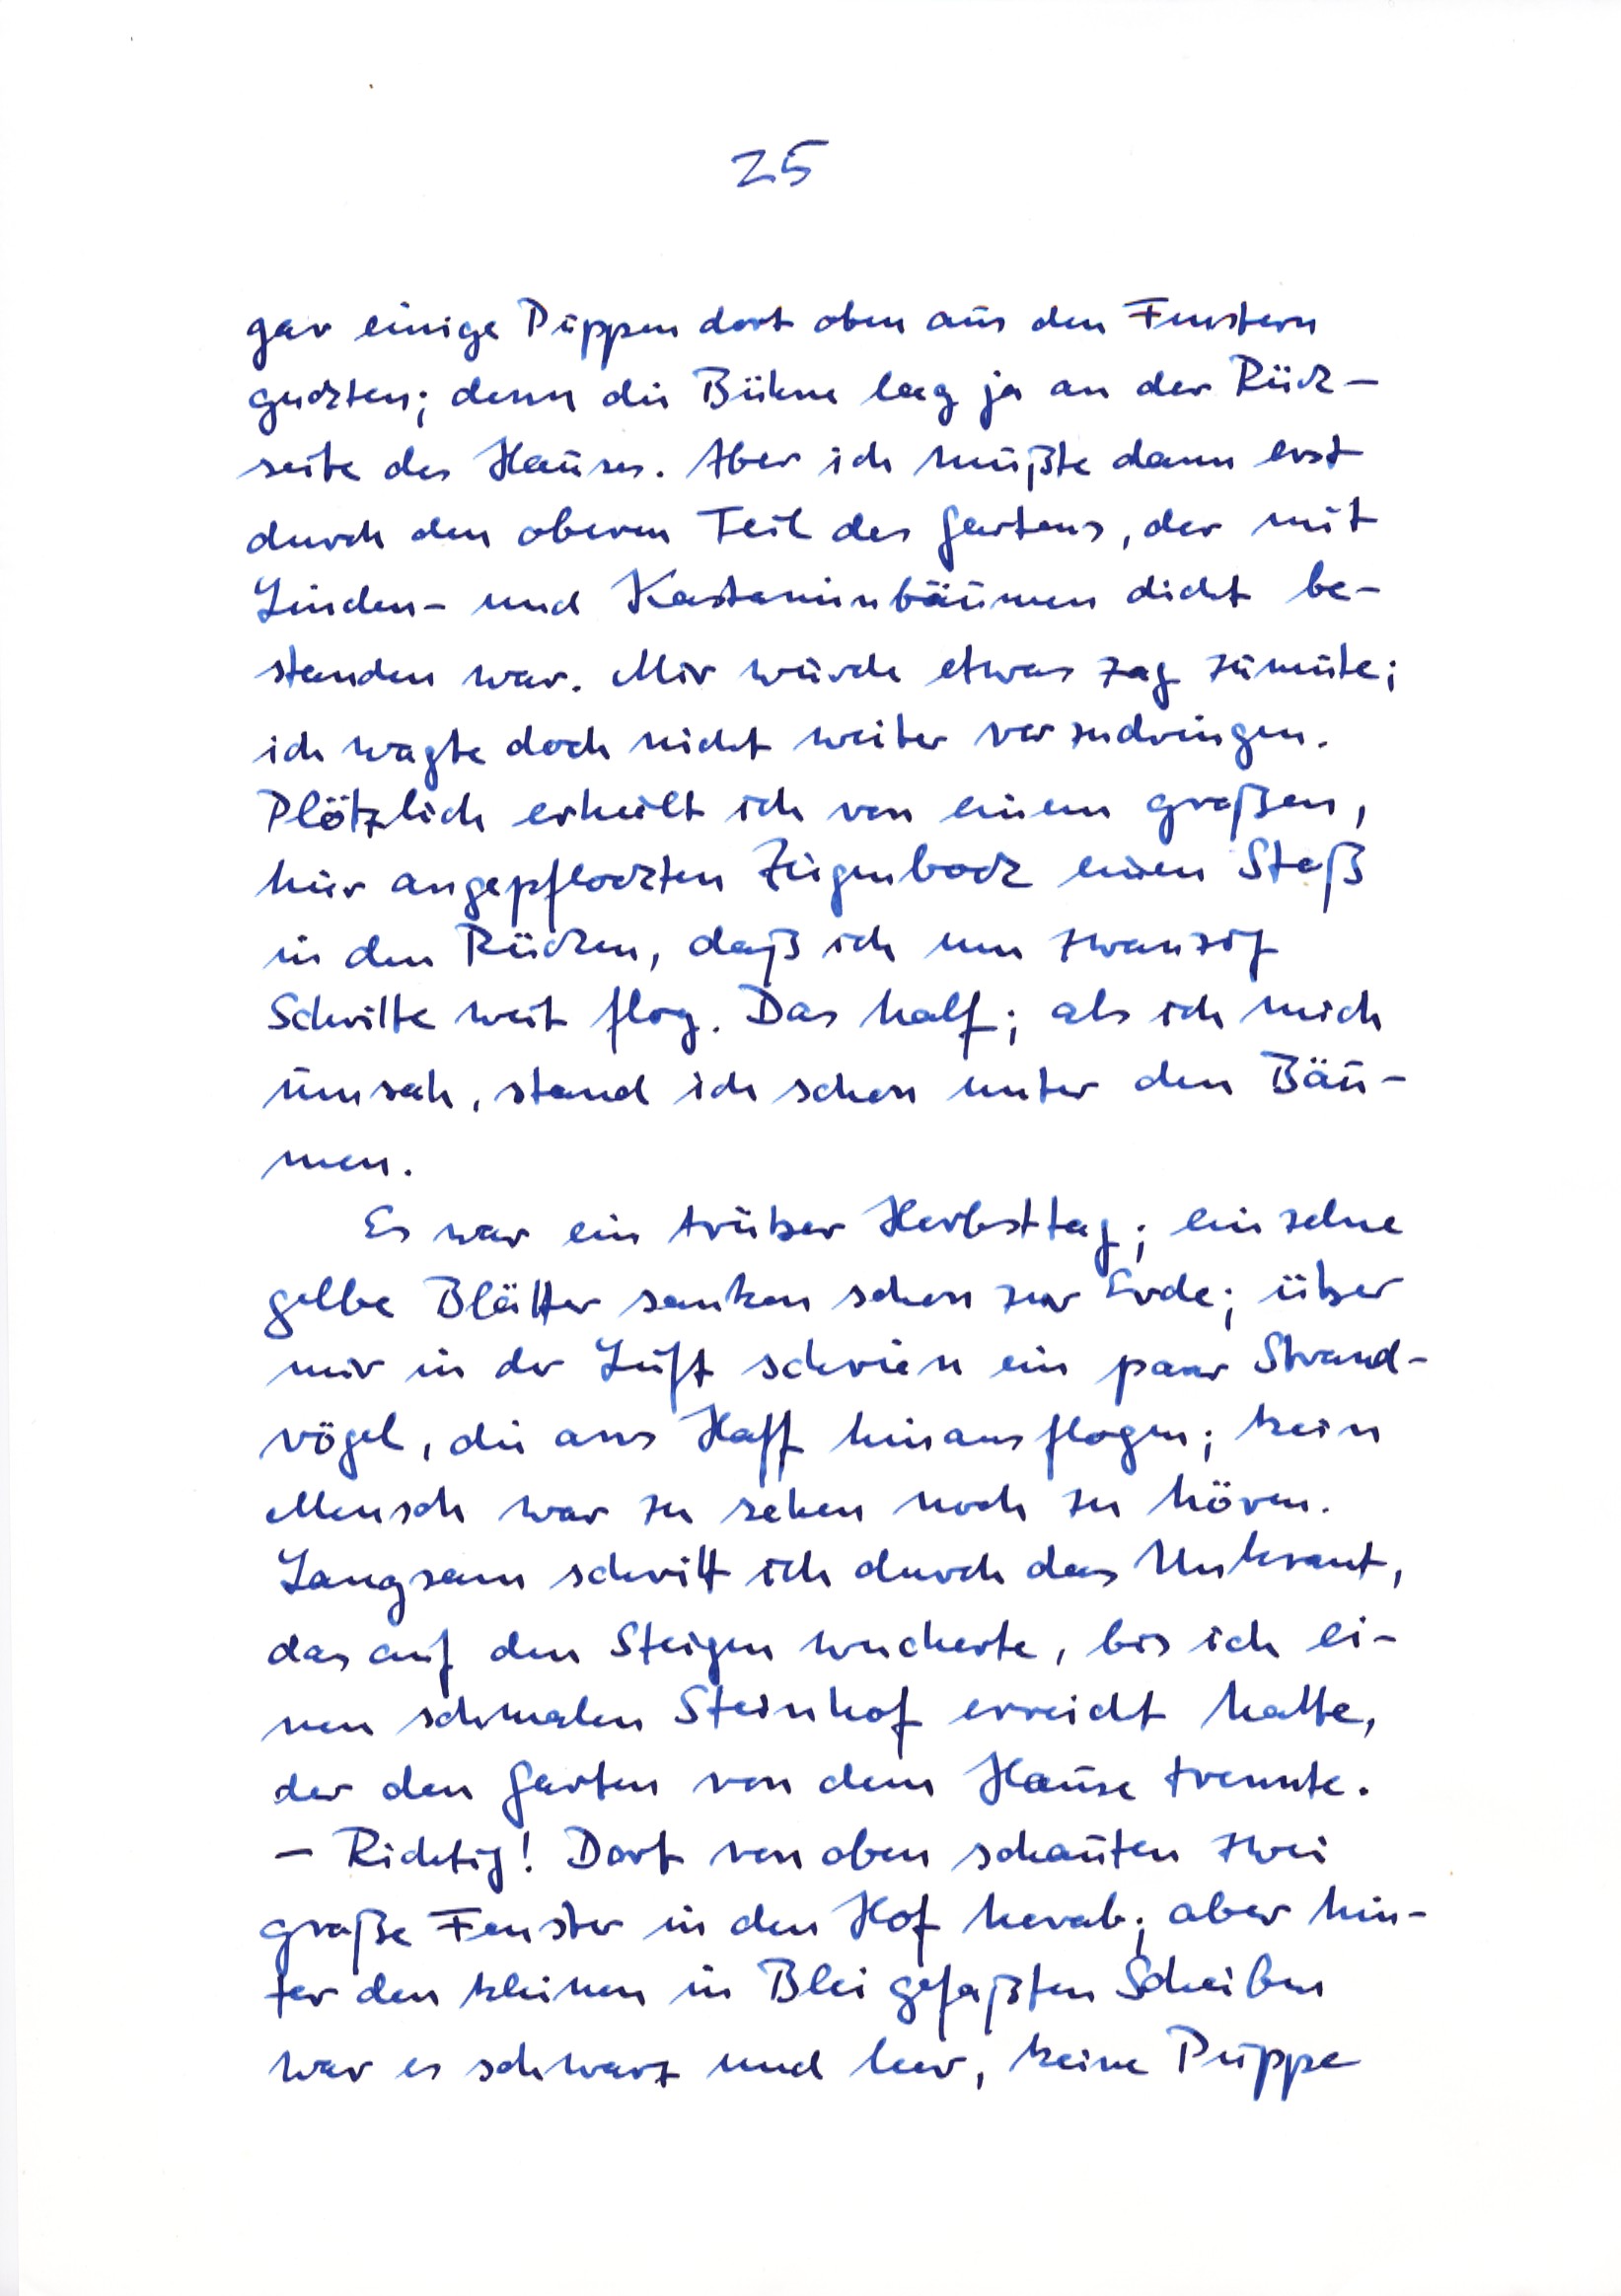 25
gar einige Puppen dort oben aus den Fenstern
guckten; denn die Bühne lag ja an der Rück-
seite des Hauses. Aber ich mußte dann erst
durch den oberen Teil des Gartens, der mit
Linden- und Kastanienbäumen dicht be-
standen war. Mir wurde etwas zag zumute;
ich wagte doch nicht weiter vorzudringen.
Plötzlich erhielt ich von einem großen,
hier angepflockten Ziegenbock einen Stoß
in den Rücken, daß ich um zwanzig
Schritte weit flog. Das half; als ich mich
umsah, stand ich schon unter den Bäu-
men.
Es war ein trüber Herbsttag; einzelne
gelbe Blätter sanken schon zur Erde; über
mir in der Luft schrien ein paar Strand-
vögel, die ans Haff hinausflogen; kein
Mensch war zu sehen noch zu hören.
Langsam schritt ich durch das Unkraut,
das auf den Steigen wucherte, bis ich ei-
nen schmalen Steinhof erreicht hatte,
der den Garten von dem Hause trennte.
– Richtig! Dort von oben schauten zwei
große Fenster in den Hof herab; aber hin-
ter den kleinen in Blei gefaßten Scheiben
war es schwarz und leer, keine Puppe